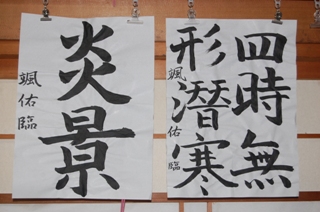 四時無
形潜寒
颯佑臨
炎景
颯佑臨